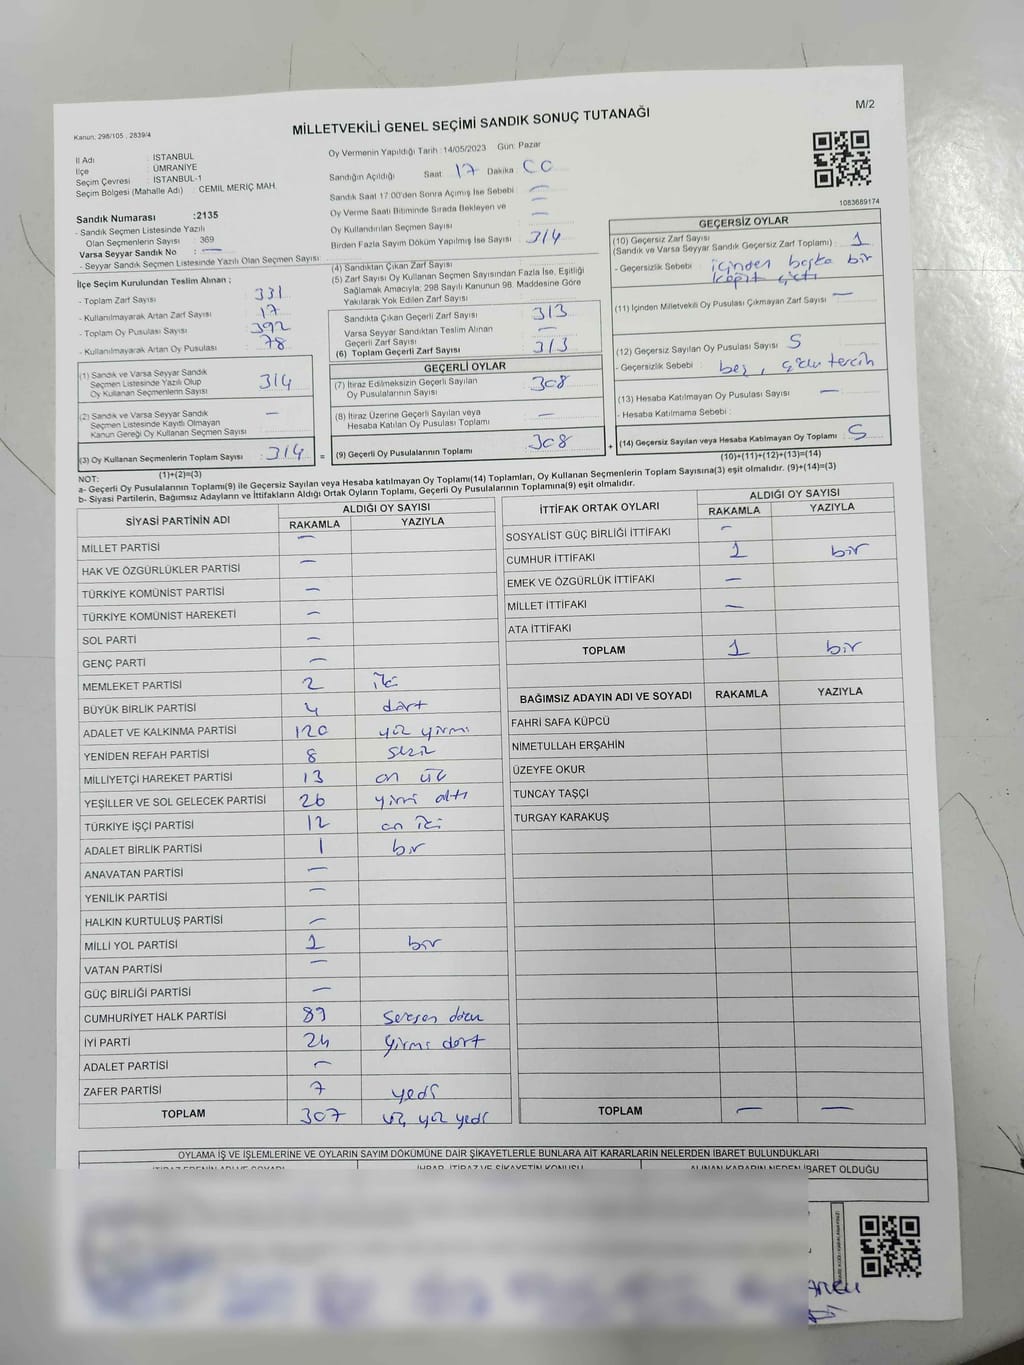 M/2
Kanun: 298/105 , 2839/4
MİLLETVEKİLİ GENEL SEÇİMİ SANDIK SONUÇ TUTANAĞI
İl Adı : İSTANBUL
İlçe : ÜMRANİYE
Seçim Çevresi : İSTANBUL-1
Seçim Bölgesi (Mahalle Adı) : CEMİL MERİÇ MAH.
Sandık Numarası :2135
- Sandık Seçmen Listesinde Yazılı
Olan Seçmenlerin Sayısı : 369
Varsa Seyyar Sandık No : —
- Seyyar Sandık Seçmen Listesinde Yazılı Olan Seçmen Sayısı :
Oy Vermenin Yapıldığı Tarih :14/05/2023 Gün: Pazar
Sandığın Açıldığı Saat: 17 Dakika 00
Sandık Saat 17:00'den Sonra Açımış İse Sebebi : —
Oy Verme Saati Bitiminde Sırada Bekleyen ve —
Oy Kullandırılan Seçmen Sayısı : —
Birden Fazla Sayım Döküm Yapılmış İse Sayısı : 314
1083689174
İlçe Seçim Kurulundan Teslim Alınan ;
- Toplam Zarf Sayısı : 331
- Kullanılmayarak Artan Zarf Sayısı : 17
- Toplam Oy Pusulası Sayısı : 392
- Kullanılmayarak Artan Oy Pusulası : 78
(1) Sandık ve Varsa Seyyar Sandık
Seçmen Listesinde Yazılı Olup
Oy Kullanan Seçmenlerin Sayısı : 314
(2) Sandık ve Varsa Seyyar Sandık
Seçmen Listesinde Kayıtlı Olmayan
Kanun Gereği Oy Kullanan Seçmen Sayısı : —
(3) Oy Kullanan Seçmenlerin Toplam Sayısı : 314 =
(1)+(2)=(3)
(4) Sandıktan Çıkan Zarf Sayısı :
(5) Zarf Sayısı Oy Kullanan Seçmen Sayısından Fazla İse, Eşitliği
Sağlamak Amacıyla; 298 Sayılı Kanunun 98. Maddesine Göre
Yakılarak Yok Edilen Zarf Sayısı :
Sandıkta Çıkan Geçerli Zarf Sayısı : 313
Varsa Seyyar Sandıktan Teslim Alınan
Geçerli Zarf Sayısı : —
(6) Toplam Geçerli Zarf Sayısı : 313
GEÇERLİ OYLAR
(7) İtiraz Edilmeksizin Geçerli Sayılan
Oy Pusulalarının Sayısı : 308
(8) İtiraz Üzerine Geçerli Sayılan veya
Hesaba Katılan Oy Pusulası Toplamı : —
(9) Geçerli Oy Pusulalarının Toplamı : 308 +
GEÇERSİZ OYLAR
(10) Geçersiz Zarf Sayısı
(Sandık ve Varsa Seyyar Sandık Geçersiz Zarf Toplamı) : 1
- Geçersizlik Sebebi : içinden başka bir
kağıt çıktı
(11) İçinden Milletvekili Oy Pusulası Çıkmayan Zarf Sayısı : —
(12) Geçersiz Sayılan Oy Pusulası Sayısı : 5
- Geçersizlik Sebebi : boş, çoklu tercih
(13) Hesaba Katılmayan Oy Pusulası Sayısı : —
- Hesaba Katılmama Sebebi :
(14) Geçersiz Sayılan veya Hesaba Katılmayan Oy Toplamı : 5
(10)+(11)+(12)+(13)=(14)
NOT:
a- Geçerli Oy Pusulalarının Toplamı(9) ile Geçersiz Sayılan veya Hesaba Katılmayan Oy Toplamı(14) Toplamları, Oy Kullanan Seçmenlerin Toplam Sayısına(3) eşit olmalıdır. (9)+(14)=(3)
b- Siyasi Partilerin, Bağımsız Adayların ve İttifakların Aldığı Ortak Oyların Toplamı, Geçerli Oy Pusulalarının Toplamına(9) eşit olmalıdır.
SİYASİ PARTİNİN ADI ALDIĞI OY SAYISI
RAKAMLA YAZIYLA
MİLLET PARTİSİ —
HAK VE ÖZGÜRLÜKLER PARTİSİ —
TÜRKİYE KOMÜNİST PARTİSİ —
TÜRKİYE KOMÜNİST HAREKETİ —
SOL PARTİ —
GENÇ PARTİ —
MEMLEKET PARTİSİ 2 iki
BÜYÜK BİRLİK PARTİSİ 4 dört
ADALET VE KALKINMA PARTİSİ 120 yüz yirmi
YENİDEN REFAH PARTİSİ 8 sekiz
MİLLİYETÇİ HAREKET PARTİSİ 13 on üç
YEŞİLLER VE SOL GELECEK PARTİSİ 26 yirmi altı
TÜRKİYE İŞÇİ PARTİSİ 12 on iki
ADALET BİRLİK PARTİSİ 1 bir
ANAVATAN PARTİSİ —
YENİLİK PARTİSİ —
HALKIN KURTULUŞ PARTİSİ —
MİLLİ YOL PARTİSİ 1 bir
VATAN PARTİSİ —
GÜÇ BİRLİĞİ PARTİSİ —
CUMHURİYET HALK PARTİSİ 89 seksen dokuz
İYİ PARTİ 24 yirmi dört
ADALET PARTİSİ —
ZAFER PARTİSİ 7 yedi
TOPLAM 307 üç yüz yedi
İTTİFAK ORTAK OYLARI ALDIĞI OY SAYISI
RAKAMLA YAZIYLA
SOSYALİST GÜÇ BİRLİĞİ İTTİFAKI —
CUMHUR İTTİFAKI 1 bir
EMEK VE ÖZGÜRLÜK İTTİFAKI —
MİLLET İTTİFAKI —
ATA İTTİFAKI
TOPLAM 1 bir
BAĞIMSIZ ADAYIN ADI VE SOYADI RAKAMLA YAZIYLA
FAHRİ SAFA KÜPCÜ
NİMETULLAH ERŞAHİN
ÜZEYFE OKUR
TUNCAY TAŞÇI
TURGAY KARAKUŞ
TOPLAM — —
OYLAMA İŞ VE İŞLEMLERİNE VE OYLARIN SAYIM DÖKÜMÜNE DAİR ŞİKAYETLERLE BUNLARA AİT KARARLARIN NELERDEN İBARET BULUNDUKLARI
İTİRAZ EDENİN ADI VE SOYADI İHBAR, İTİRAZ VE ŞİKAYETİN KONUSU ALINAN KARARIN NEDEN İBARET OLDUĞU